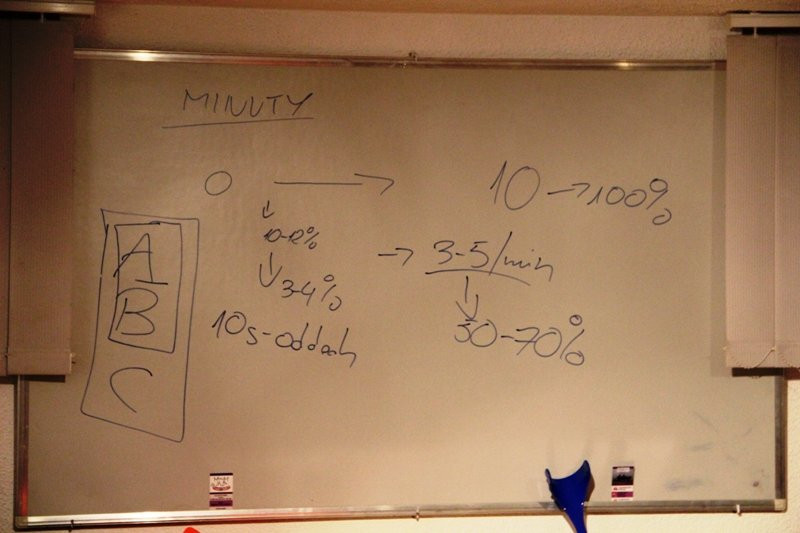 MINUTY
0 → 10 → 100%
↓
10-12%
↓ 3-4%
10s-oddech
→ 3-5/min
↓
50-70%
A
B
C